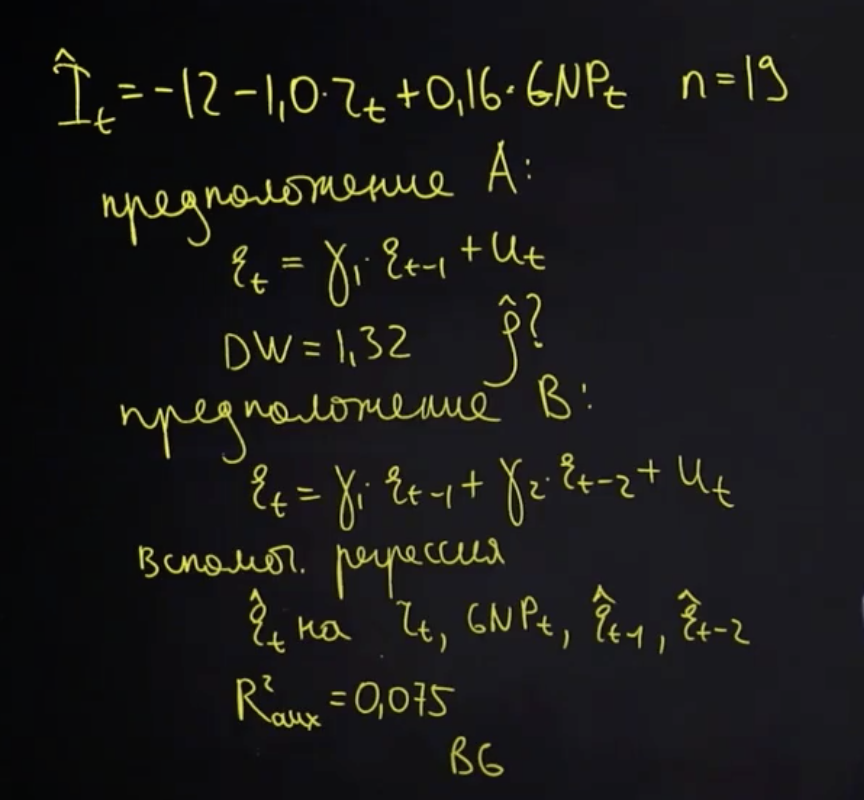 Î_t = -12 - 1,0·r_t + 0,16·GNP_t n=19
предположение A:
ε_t = γ_1·ε_{t-1} + u_t
DW = 1,32 ρ̂?
предположение B:
ε_t = γ_1·ε_{t-1} + γ_2·ε_{t-2} + u_t
вспомог. регрессия
ε̂_t на r_t, GNP_t, ε̂_{t-1}, ε̂_{t-2}
R²_{aux} = 0,075
BG